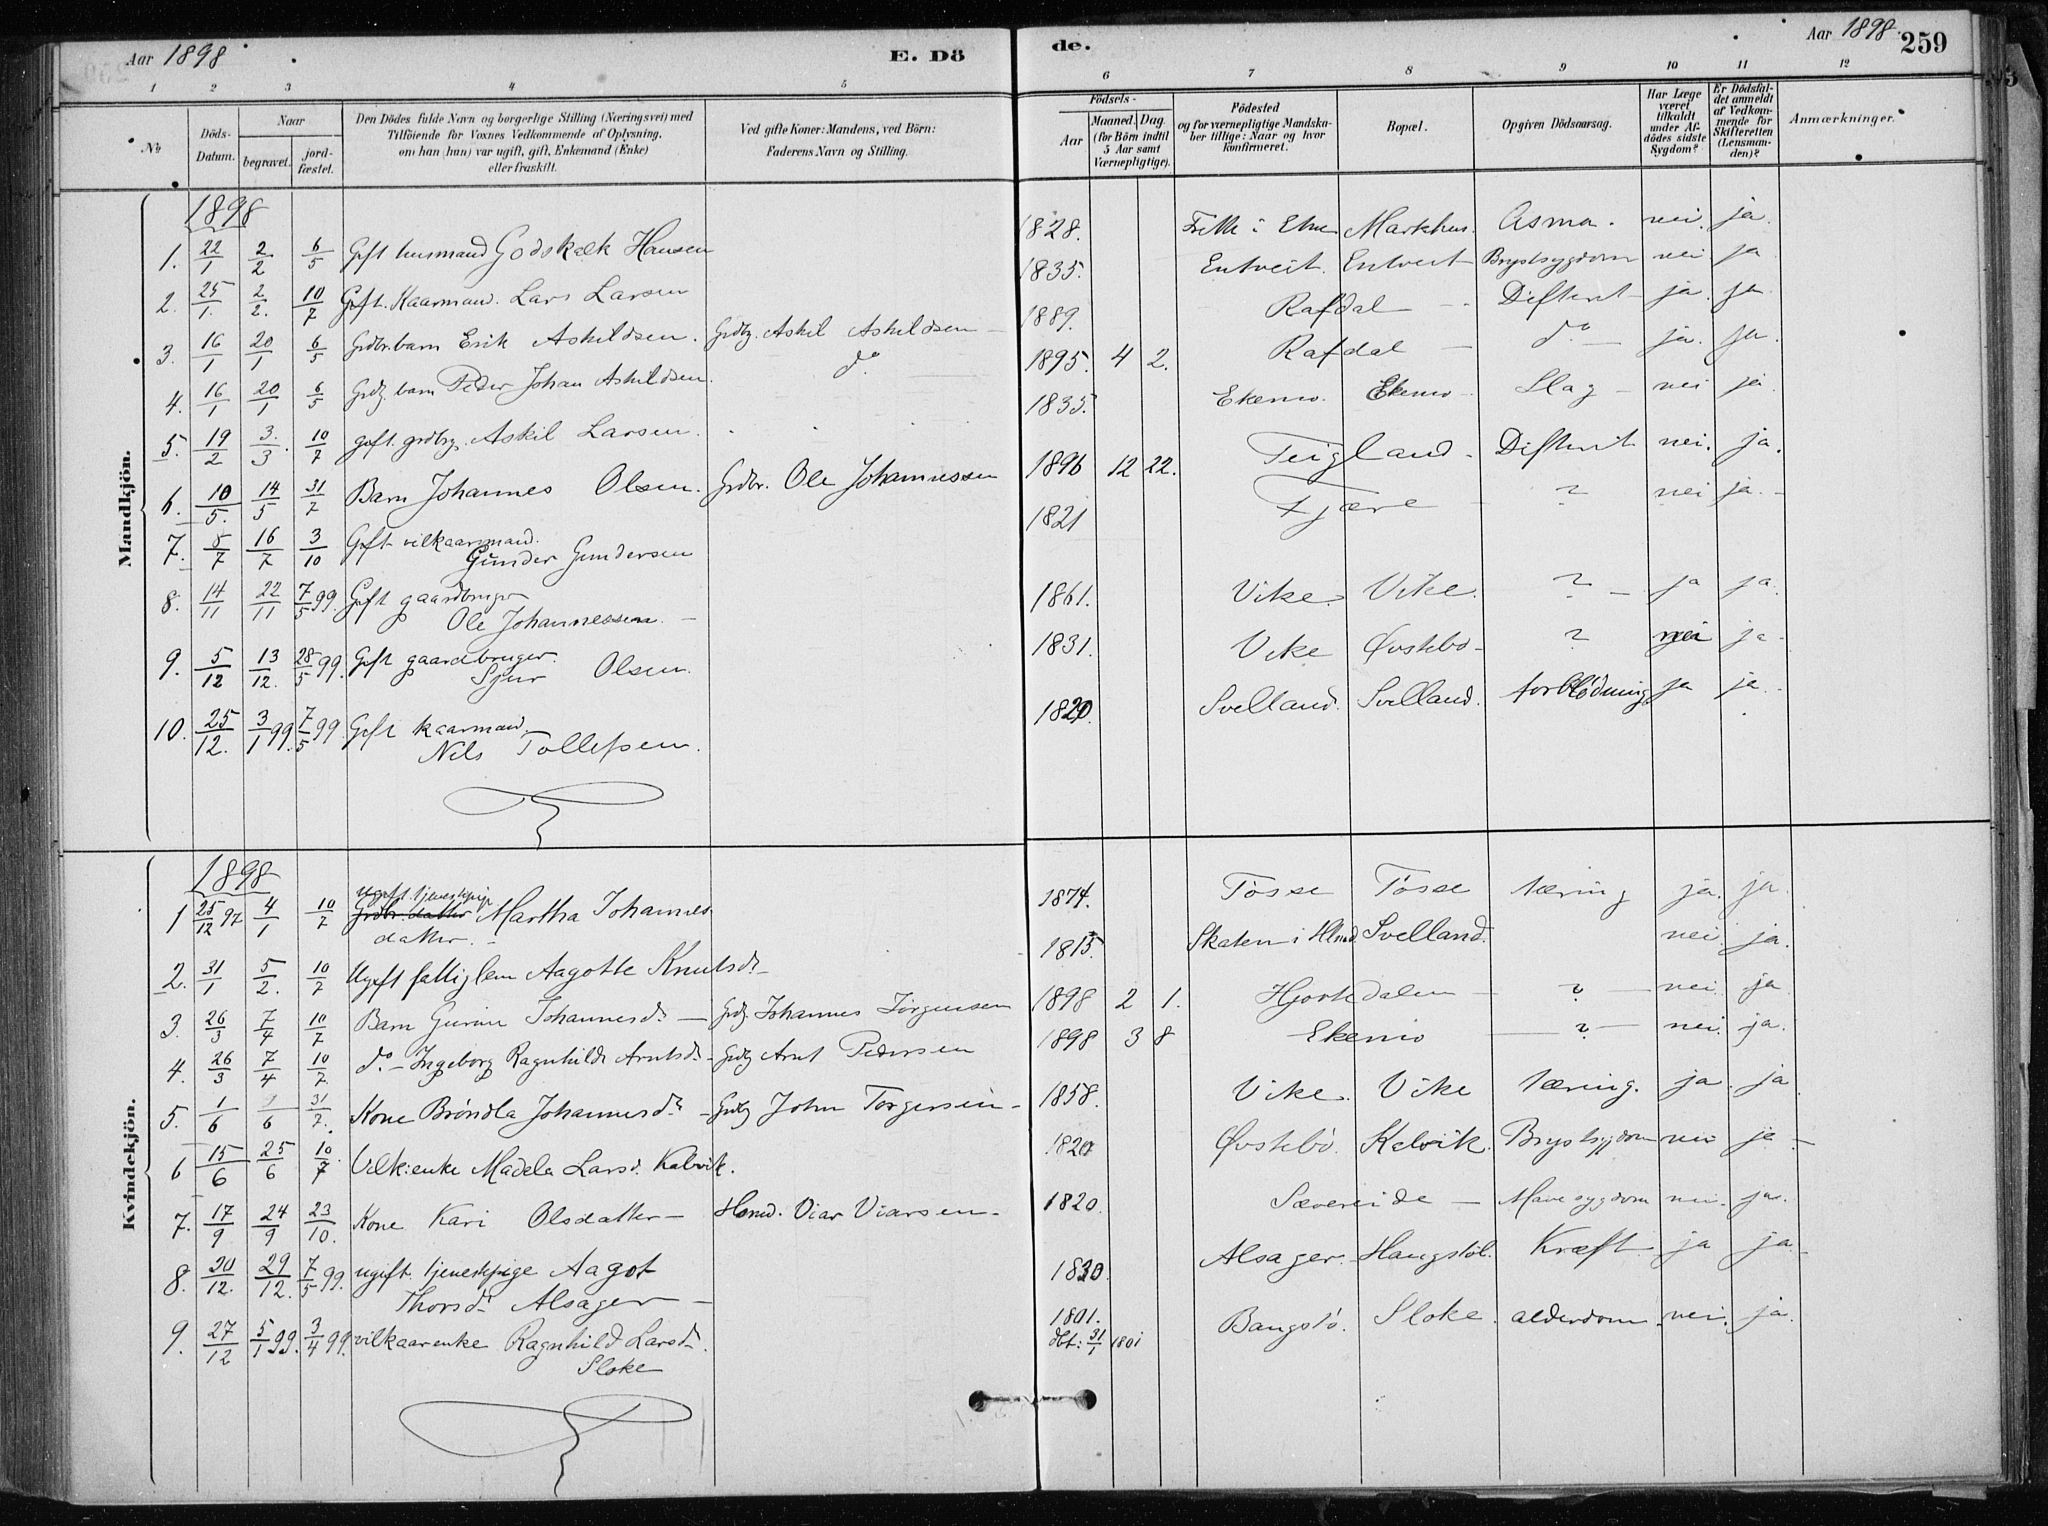 Aar 1898. E. Döde. Aar 1898. 259
1 2 3 4 5 6 7 8 9 10 11 12
No
Döds-Datum.
Naar
begravet.
jordfæstet.
Den Dödes fulde Navn og borgerlige Stilling (Næringsvei) med
Tilföiende for Voxnes Vedkommende af Oplysning,
om han (hun) var ugift, gift, Enkemand (Enke)
eller fraskilt.
Ved gifte Koner: Mandens, ved Börn:
Faderens Navn og Stilling.
Födsels-
Aar
Maaned. Dag.
(for Börn indtil
5 Aar samt
Værnepligtige).
Födested
og for værnepligtige Mandska-
ber tillige: Naar og hvor
konfirmeret.
Bopæl.
Opgiven Dödsaarsag.
Har Læge
været
tilkaldt
under Af-
dödes sidste
Sygdom?
Er Dödsfal-
det anmeldt
af Vedkom-
mende for
Skifteretten
(Lensman-
den)?
Anmærkninger.
Mandkjön.
1898
1. 22/1 2/2 6/5 Gift husmand Godskalk Hansen 1828. i Etne Markhus. Asma. nei. ja.
2. 25/1. 2/2. 10/7 Gift. Kaarmand. Lars Larsen 1835. Entveit. Entveit Brystsygdom nei ja
3. 16/1 20/1 6/5 Grdbr. barn Erik Askildsen. Grdbg. Askil Askildsen 1889. Rafdal Difterit ja. ja.
4. 16/1 20/1 6/5 Grdbg barn Peder Johan Askildsen. do. 1895. 4 2. Rafdal do ja. ja.
5. 19/2 3/3. 10/7 gift. grdbrg. Askil Larsen. 1835. Ekemo. Ekemo Slag nei ja.
6. 10/5. 14/5 31/7 Barn Johannes Olsen. Grdbr. Ole Johannessen 1896 12 22. Teigland Difterit nei. ja.
7. 8/7 16/7 3/10 Gift vilkaarmand.
Gunder Gundersen 1821 Fjære ? nei ja.
8. 14/11 22/11 7/5 99. Gift gaardbruger
Ole Johannessen. 1861. Vike. Vike. ? ja ja.
9. 5/12 13/12. 28/5 99. Gift gaardbruger.
Sjur Olsen. 1831. Vike Øvstebø ? nei ja.
10. 25/12. 3/1 99. 7/5 99. Gift kaarmand.
Nils Tollefsen. 1820. Svelland. Svelland. forblødning ja ja.
Kvindekjön.
1898
1 25/12 97 4/1 10/7 Ugift tjenestepige
Grdbr. datter Martha Johannes
datter. 1874. Tøsse Tøsse tæring ja. ja.
2. 31/1 5/2. 10/7 Ugift fattiglem Aagotte Knutsdr 1815. Skaten i Svelland. nei ja.
3. 26/3 7/4 10/7 Barn Gurine Johannesdr Grdbg Johannes Jørgensen 1898 2 1. Hjortedalen ? nei ja
4. 26/3 7/4 10/7. do Ingeborg Ragnhilde Arntsdr Grdbg Arnt Pedersen 1898 3 8 Ekemo ? nei. ja.
5. 1/6 /6 31/7. Kone Brøndla Johannesdr Grdbg John Torgersen 1858. Vike. Vike tæring. ja ja
6 15/6 25/6 10/7 Vilk: enke Madela Larsd. Kalvik. 1820 Øvstebø. Kelvik. Brystsygdom nei ja
7. 17/9 24/9 23/10. Kone Kari Olsdatter Hsmd. Viar Viarsen. 1820. Sævereide Mavesygdom nei. ja.
8. 20/12. 29/12. 7/5 99. ugift. tjenestepige Aagot
Thorsdr Alsager 1830. Alsager. Haugstøl. Kræft ja ja.
9. 27/12 5/1 99. 3/4 99. vilkaarenke Ragnhild Larsdr.
Sloke 1801.
dbt: 31/1 1801 Bangstø. Sloke. alderdom. nei. ja.